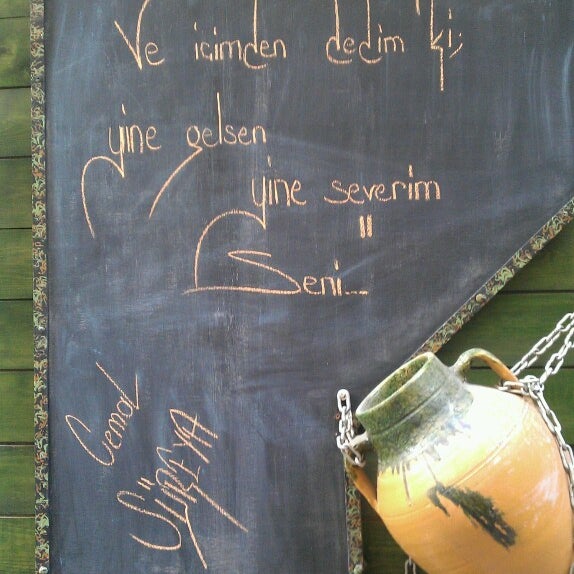 Ve içimden dedim ki;
yine gelsen
yine severim
"
Seni...
Cemal
SüREYA